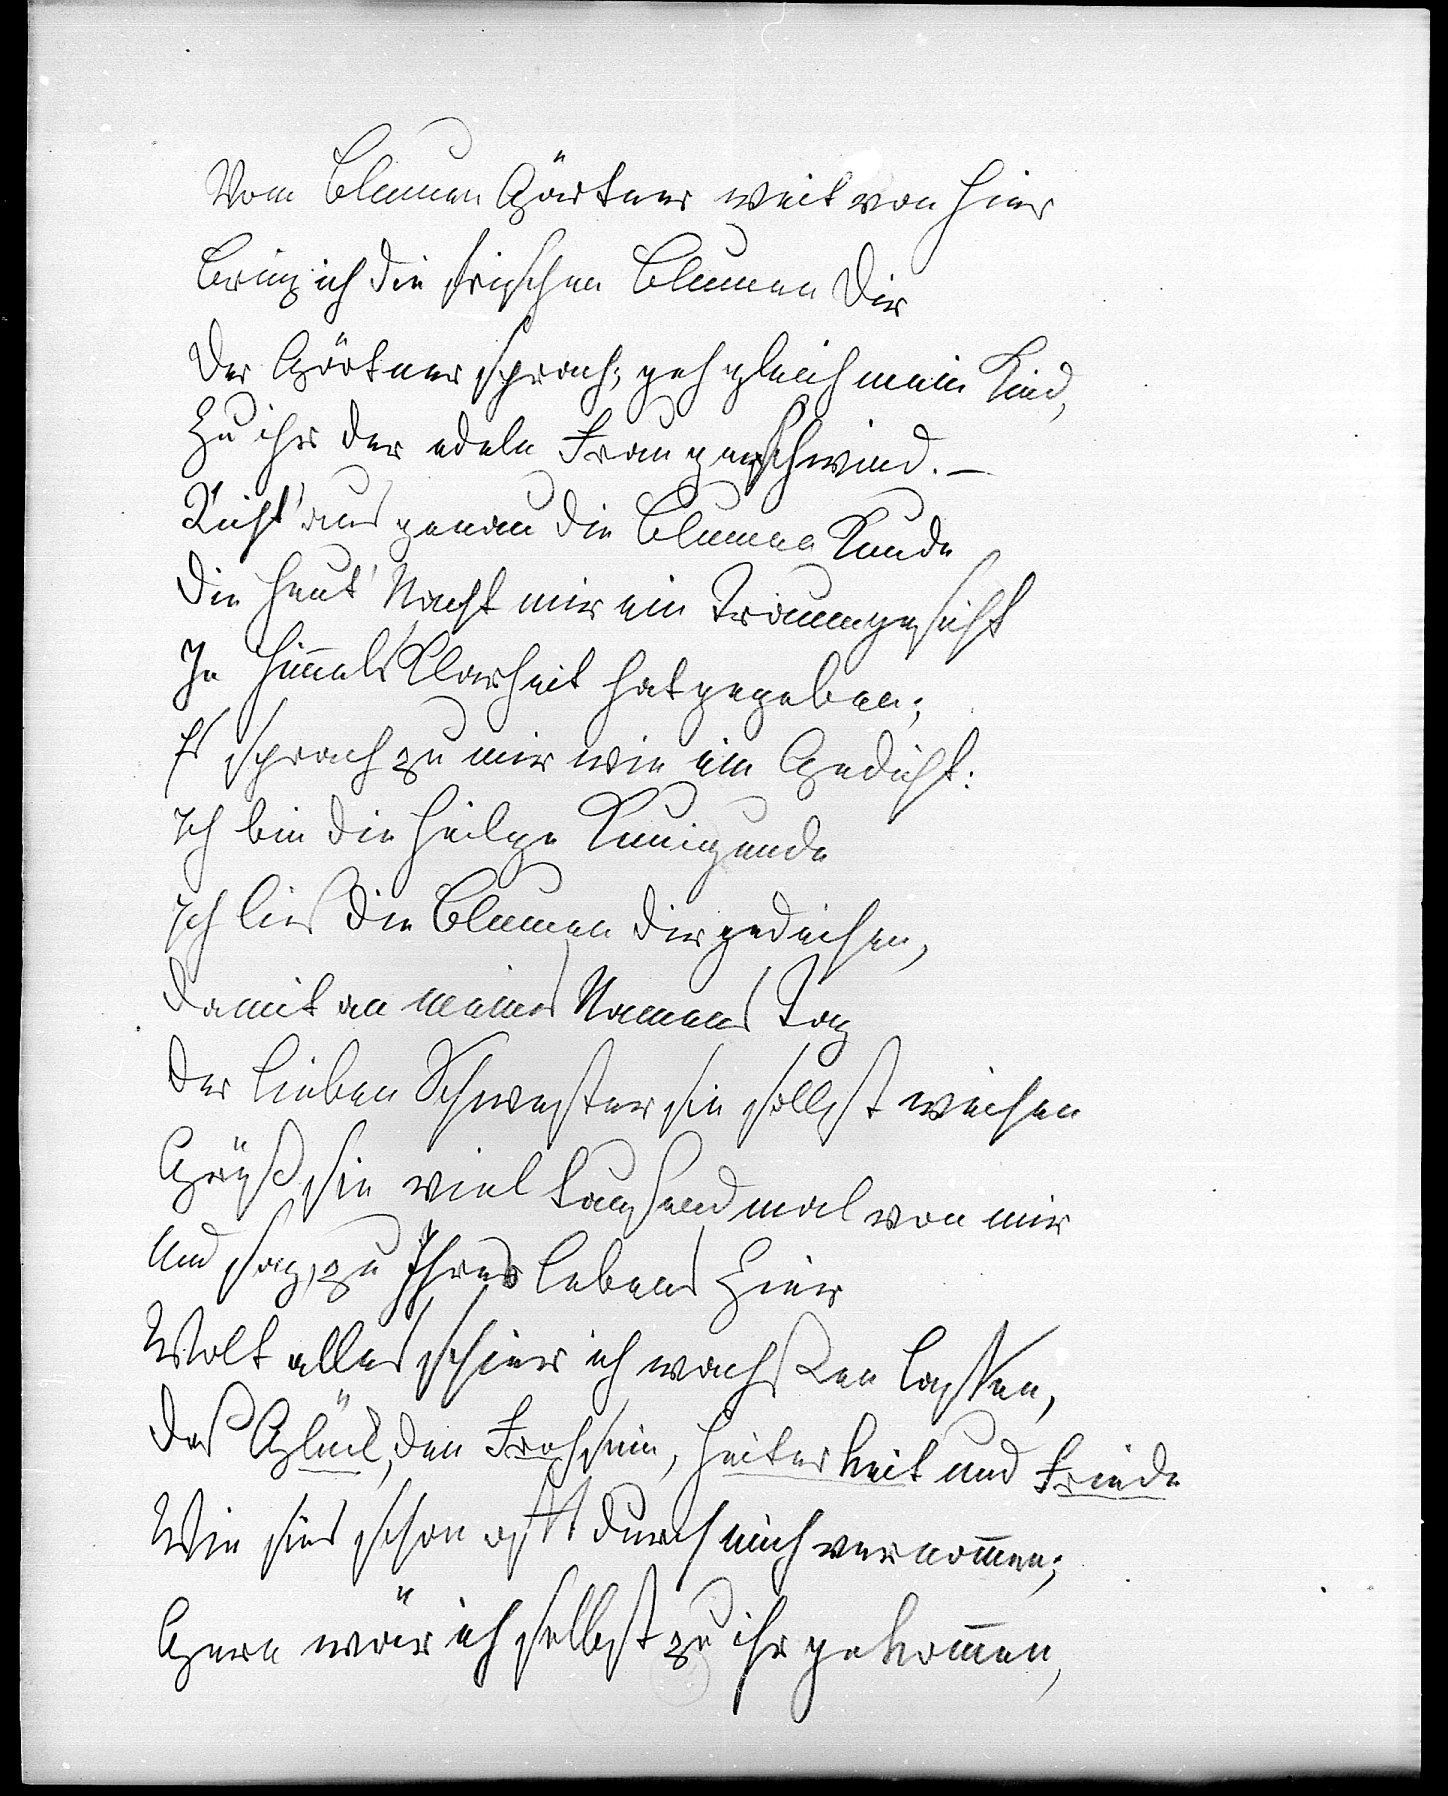 Vom Blumen Gärtner weit von hier
Bring ich die frischen Blumen Dir
Der Gärtner sprach; geh gleich mein Kind,
Zu ihr der edeln Frau geschwind. –
Richt' aus genau die Blumen Kunde
Die heut' Nacht mir ein Traumgesicht
In Him̅els Klarheit hat gegeben;
Es sprach zu mir wie ein Gedicht:
Ich bin die heilge Kunigunde
Ich lies die Blumen dir gedeihen,
Damit an meines Namens Tag
Der lieben Schwester sie sollst weihen
Grüß sie viel tausend mal von mir
Und sag, zu Ihres Lebens Zier
Wolt alles schier ich wachsen lassen,
Das Glück, den Frohsein, Heiterkeit und Friede
Wie sies schon oft durch mich vernom̅en;
Gern wär ich selbst zu ihr gekom̅en,